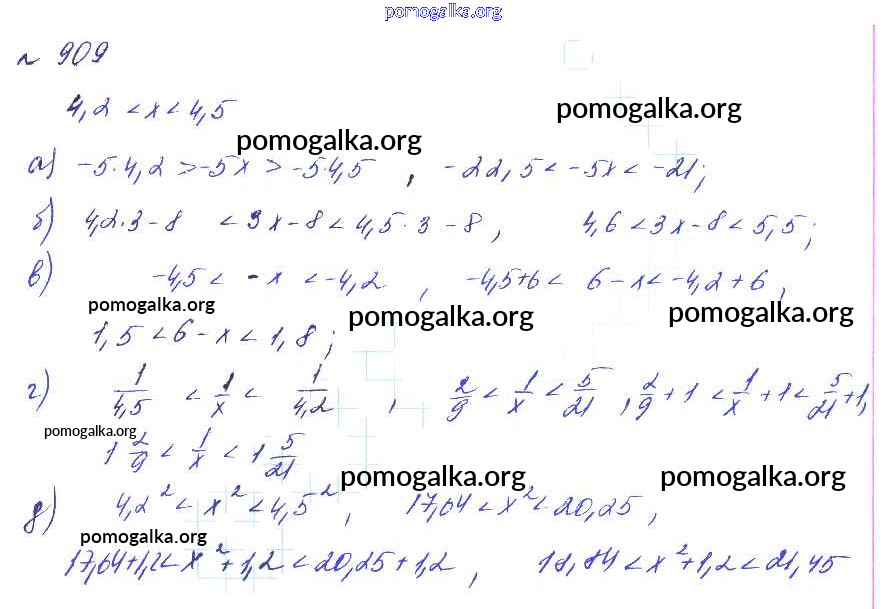 pomogalka.org
№ 909
4,2 < x < 4,5
pomogalka.org
pomogalka.org
а) -5·4,2 > -5x > -5·4,5 , -22,5 < -5x < -21;
б) 4,2·3 - 8 < 3x - 8 < 4,5·3 - 8 , 4,6 < 3x - 8 < 5,5 ;
в) -4,5 < -x < -4,2 , -4,5+6 < 6 - x < -4,2 + 6 ,
pomogalka.org pomogalka.org pomogalka.org
1,5 < 6 - x < 1,8 ;
г) 1/4,5 < 1/x < 1/4,2 , 2/9 < 1/x < 5/21 , 2/9 + 1 < 1/x + 1 < 5/21 + 1,
pomogalka.org
1 2/9 < 1/x < 1 5/21
pomogalka.org pomogalka.org
д) 4,2² < x² < 4,5² , 17,64 < x² < 20,25 ,
pomogalka.org
17,64+1,2 < x² + 1,2 < 20,25 + 1,2 , 18,84 < x² + 1,2 < 21,45